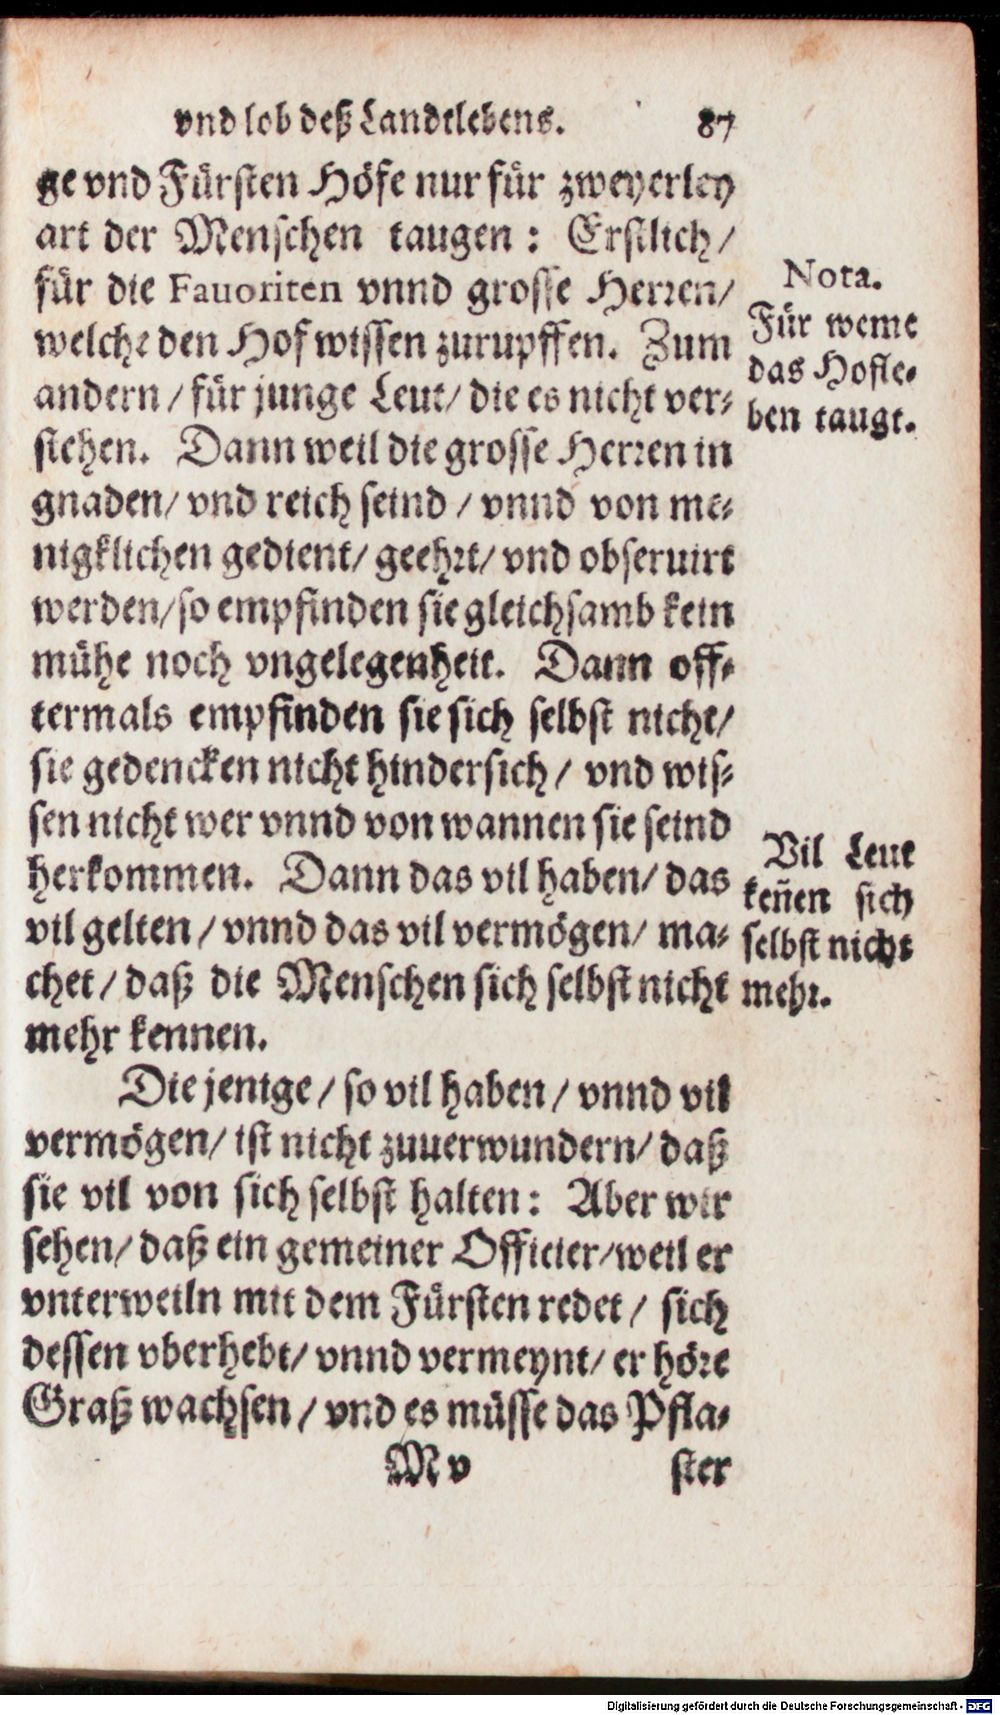 vnd lob deß Landtlebens. 87
ge vnd Fürsten Höfe nur für zweyerley
art der Menschen taugen: Erstlich/
für die Fauoriten vnnd grosse Herren/
welche den Hof wissen zurupffen. Zum
andern/ für junge Leut/ die es nicht ver-
stehen. Dann weil die grosse Herren in
gnaden/ vnd reich seind/ vnnd von me-
nigklichen gedient/ geehrt/ vnd obseruirt
werden/ so empfinden sie gleichsamb kein
mühe noch vngelegenheit. Dann off-
termals empfinden sie sich selbst nicht/
sie gedencken nicht hindersich/ vnd wis-
sen nicht wer vnnd von wannen sie seind
herkommen. Dann das vil haben/ das
vil gelten/ vnnd das vil vermögen/ ma-
chet/ daß die Menschen sich selbst nicht
mehr kennen.
Die jenige/ so vil haben/ vnnd vil
vermögen/ ist nicht zuuerwundern/ daß
sie vil von sich selbst halten: Aber wir
sehen/ daß ein gemeiner Officier/ weil er
vnterweiln mit dem Fürsten redet/ sich
dessen vberhebt/ vnnd vermeynt/ er höre
Graß wachsen/ vnd es müsse das Pfla-
M v ster
Nota.
Für weme
das Hofle-
ben taugt.
Vil Leut
keñen sich
selbst nicht
mehr.
Digitalisierung gefördert durch die Deutsche Forschungsgemeinschaft - DFG